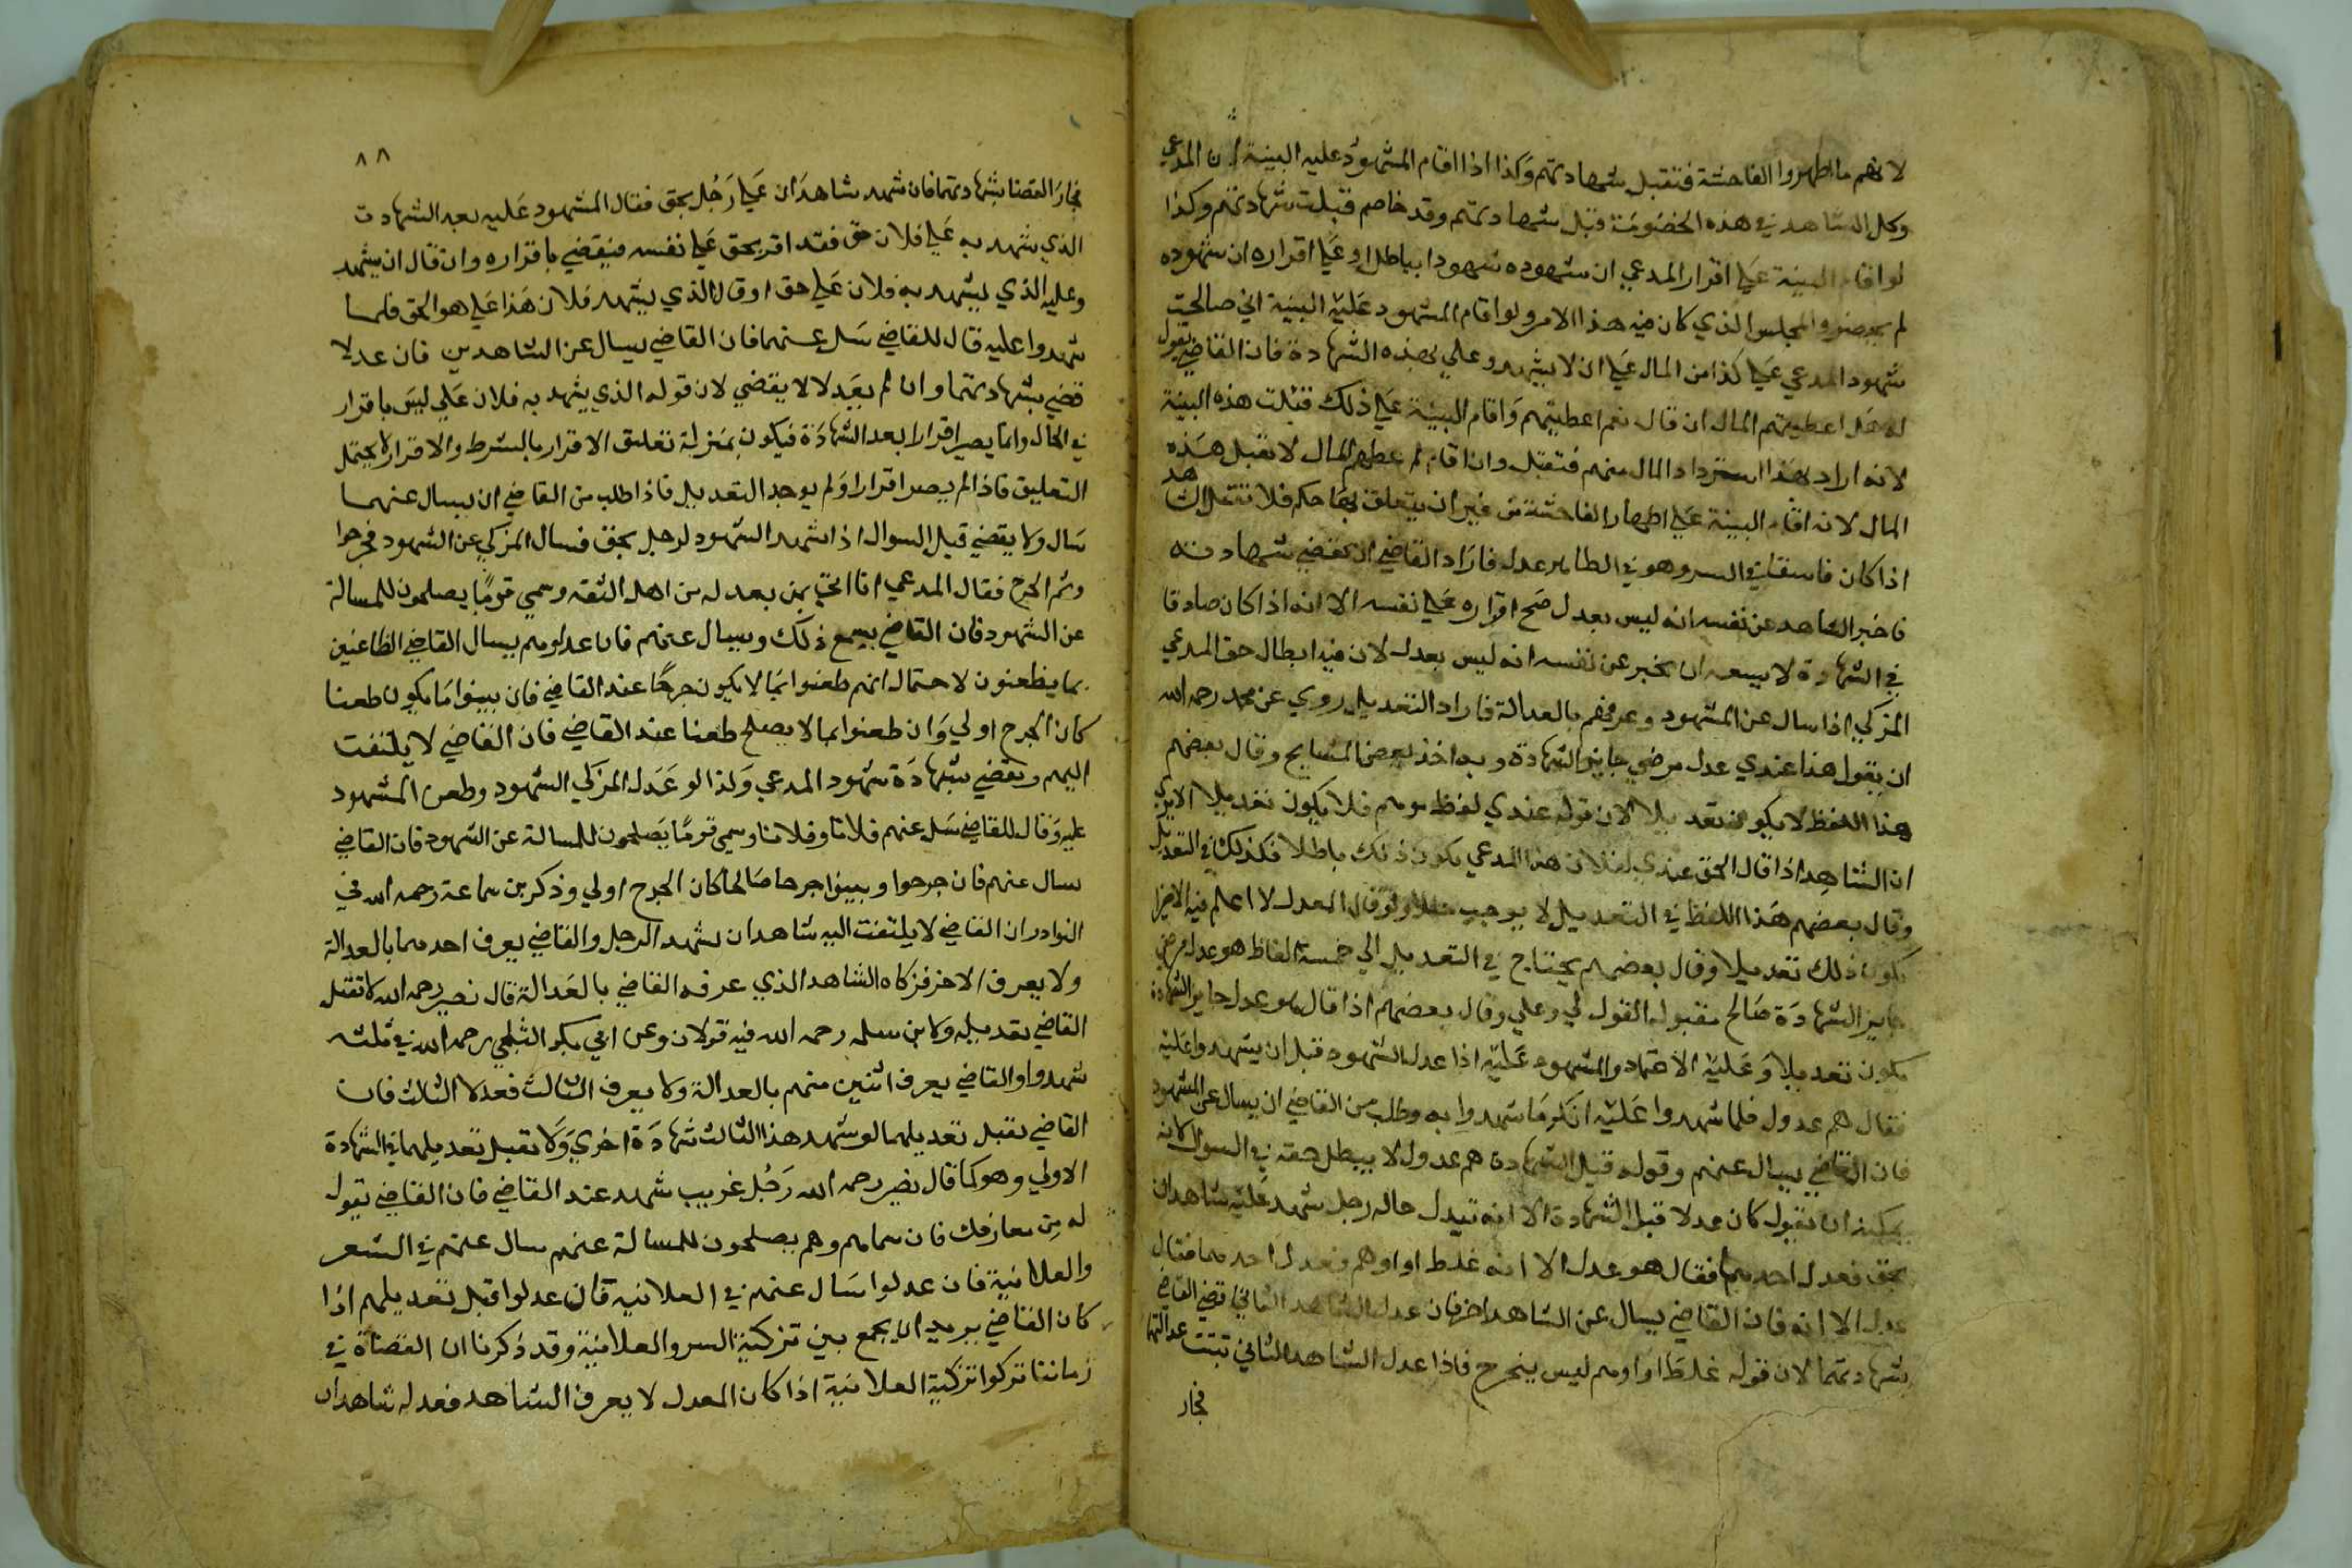 لانهم ما اظهروا الفاحشة فتقبل شهادتهم وكذا اذا اقام المشهود عليه البينة ان المدعي
وكل الشاهد في هذه الخصومة قبل شهادتهم وقد خاصم قبلت شهادتهم وكذا
لو اقام البينة على اقرار المدعي ان شهوده شهودا بباطل او على اقراره ان شهوده
لم يحضروا المجلس الذي كان فيه هذا الامر ولو اقام المشهود عليه البينة اني صالحت
شهود المدعي على كذا من المال على ان لا يشهدو علي بهذه الشهادة فان القاضي يقول
له هل اعطيتهم المال ان قال نعم اعطيتهم واقام البينة على ذلك قبلت هذه البينة
لانه اراد بهذا استرداد المال منهم فتقبل وان اقام لم عطهم المال لا تقبل هذه
المال لانه اقام البينة على اظهار الفاحشة من غير ان يتعلق بها حكم فلا تقبل الشاهد
اذا كان فاسقا في السر وهو في الظاهر عدل فاراد القاضي ان يقضي بشهادته
فاخبر الشاهد عن نفسه انه ليس بعدل صح اقراره على نفسه الا انه اذا كان صادقا
في الشهادة لا يسعه ان يخبر عن نفسه انه ليس بعدل لان فيه ابطال حق المدعي
المزكي اذا سال عن المشهود وعرفهم بالعدالة فاراد التعديل روي عن محمد رحمه الله
ان يقول هذا عندي عدل مرضي جايز الشهادة وبه اخذ بعض المشايخ وقال بعضهم
هذا اللفظ لا يكون تعديلا لان قوله عندي لفظ موهم فلا يكون تعديلا الا يرى
ان الشاهد اذا قال الحق عندي لفلان هذا المدعي يكون ذلك باطلا فكذلك في التعديل
وقال بعضهم هذا اللفظ في التعديل لا يوجب خللا ولو قال المعدل لا اعلم فيه الا خيرا
يكون ذلك تعديلا وقال بعضهم يحتاج في التعديل الي خمسة الفاظ هو عدل مرضي
جايز الشهادة صالح مقبول القول لي وعلي وقال بعضهم اذا قال هو عدل جايز الشهادة
يكون تعديلا وعليه الاعتماد والمشهود عليه اذا عدل الشهود قبل ان يشهدوا عليه
فقال هم عدول فلما شهدوا عليه انكر ما شهدوا به وطلب من القاضي ان يسال عن الشهود
فان القاضي يسال عنهم وقوله قبل الشهادة هم عدول لا يبطل حقه في السوال لانه
يمكنه ان يقول كان عدلا قبل الشهادة الا انه تبدل حاله رجل شهد عليه شاهدان
بحق فعدل احدهما فقال هو عدل الا انه غلط او اوهم فعدل احدهما فقال
عدل الا انه فان القاضي يسال عن الشاهد اخر فان عدل الشاهد الثاني قضي القاضي
بشهادتهما لان قوله غلط او اوهم ليس بجرح فاذا عدل الشاهد الثاني تبتت عدالتهما
فجاز
٨٨
فجاز القضا بشهادتهما فان شهد شاهدان على رجل بحق فقال المشهود عليه بعد الشهادت
الذي شهد به على فلان حق فقد اقر بحق على نفسه فيقضي باقراره وان قال ان يشهد
وعليه الذي يشهد به فلان على حق او قال الذي يشهد فلان هذا على هو الحق فلما
شهدوا عليه قال للقاضي سل عنهما فان القاضي يسال عن الشاهدين فان عدلا
قضي بشهادتهما وان لم يعدلا لا يقضي لان قوله الذي يشهد به فلان علي ليس باقرار
في الحال وانما يصير اقرارا بعد الشهادة فيكون بمنزلة تعليق الاقرار بالشرط والاقرار لا يحتمل
التعليق فاذا لم يصر اقرارا ولم يوجد التعديل فاذا طلب من القاضي ان يسال عنهما
سال ولا يقضي قبل السوال اذا شهد الشهود لرجل بحق فسال المزكي عن الشهود فجرحوا
وتم الجرح فقال المدعي انا اتي بمن يعدله من اهل الثقه وسمي قوما يصلحون للمسالة
عن الشهود فان القاضي يسمع ذلك ويسال عنهم فان عدلوهم يسال القاضي الطاعنين
بما يطعنون لاحتمال انهم طعنوا بما لا يكون جرحا عند القاضي فان بينوا ما يكون طعنا
كان الجرح اولي وان طعنوا بما لا يصلح طعنا عند القاضي فان القاضي لا يلتفت
اليهم ويقضي بشهادة شهود المدعي ولذا لو عدل المزكي الشهود وطعن المشهود
عليه وقال للقاضي سل عنهم فلانا وفلانا وسمي قوما يصلحون للمسالة عن الشهود فان القاضي
يسال عنهم فان جرحوا وبينوا جرحا صالحا كان الجرح اولي وذكر بن سماعة رحمه الله في
النوادر ان القاضي لا يلتفت اليه شاهدان شهد الرجل والقاضي يعرف احدهما بالعدالة
ولا يعرف الاخر فزكاه الشاهد الذي عرفه القاضي بالعدالة قال نصير رحمه الله لا تقبل
القاضي تعديله ولابن سلمه رحمه الله فيه قولان وعن ابي بكر البلخي رحمه الله في ثلثه
شهدوا والقاضي يعرف اثنين منهم بالعدالة ولا يعرف الثالث فعدلا الثالث فان
القاضي يقبل تعديلهما لو شهد هذا الثالث شهادة اخري ولا تقبل تعديلهما في الشهادة
الاولي وهو كما قال نصير رحمه الله رجل غريب شهد عند القاضي فان القاضي يقول
له من معارفك فان سماهم وهم يصلحون للمسالة عنهم سال عنهم في السر
والعلانية فان عدلوا سال عنهم في العلانيه فان عدلوا قبل تعديلهم اذا
كان القاضي يريد ان يجمع بين تزكية السر والعلانية وقد ذكرنا ان القضاة في
زماننا تركوا تزكية العلانية اذا كان المعدل لا يعرف الشاهد فعدله شاهدان